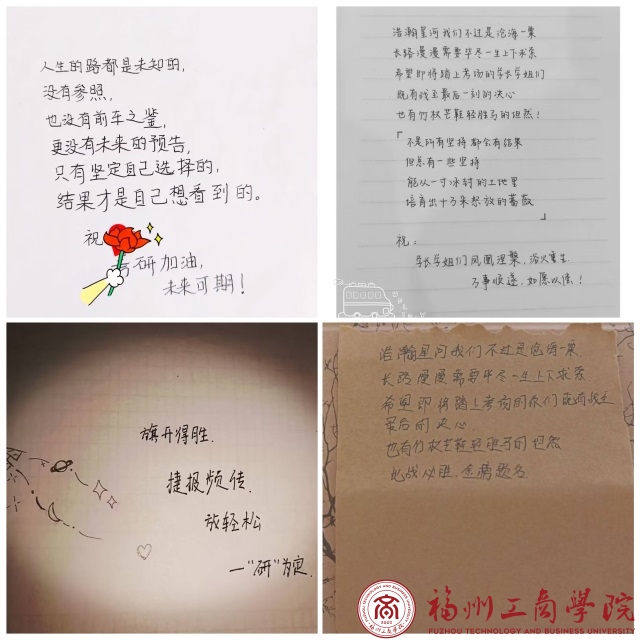 人生的路都是未知的，
没有参照，
也没有前车之鉴，
更没有未来的预告，
只有坚定自己选择的，
结果才是自己想看到的。
祝
研加油，
未来可期！
浩瀚星河我们不过是沧海一粟
长路漫漫需要毕尽一生上下求索
希望即将踏上考场的学长学姐们
既有战至最后一刻的决心
也有竹杖芒鞋轻胜马的坦然！
「
不是所有坚持都会有结果
但总有一些坚持
能从一寸冰封的土地里
培育出十万朵怒放的蔷薇
」
祝：
学长学姐们凤凰涅槃，浴火重生
万事顺遂，如愿以偿！
旗开得胜.
捷报频传.
放轻松
一"研"为定.
浩瀚星河我们不过是沧海一粟，
长路漫漫需要毕尽一生上下求索
希望即将踏上考场的你们既有战至
最后的决心
也有竹杖芒鞋轻胜马的坦然
此战必胜，金榜题名
福州工商学院
FUZHOU TECHNOLOGY AND BUSINESS UNIVERSITY